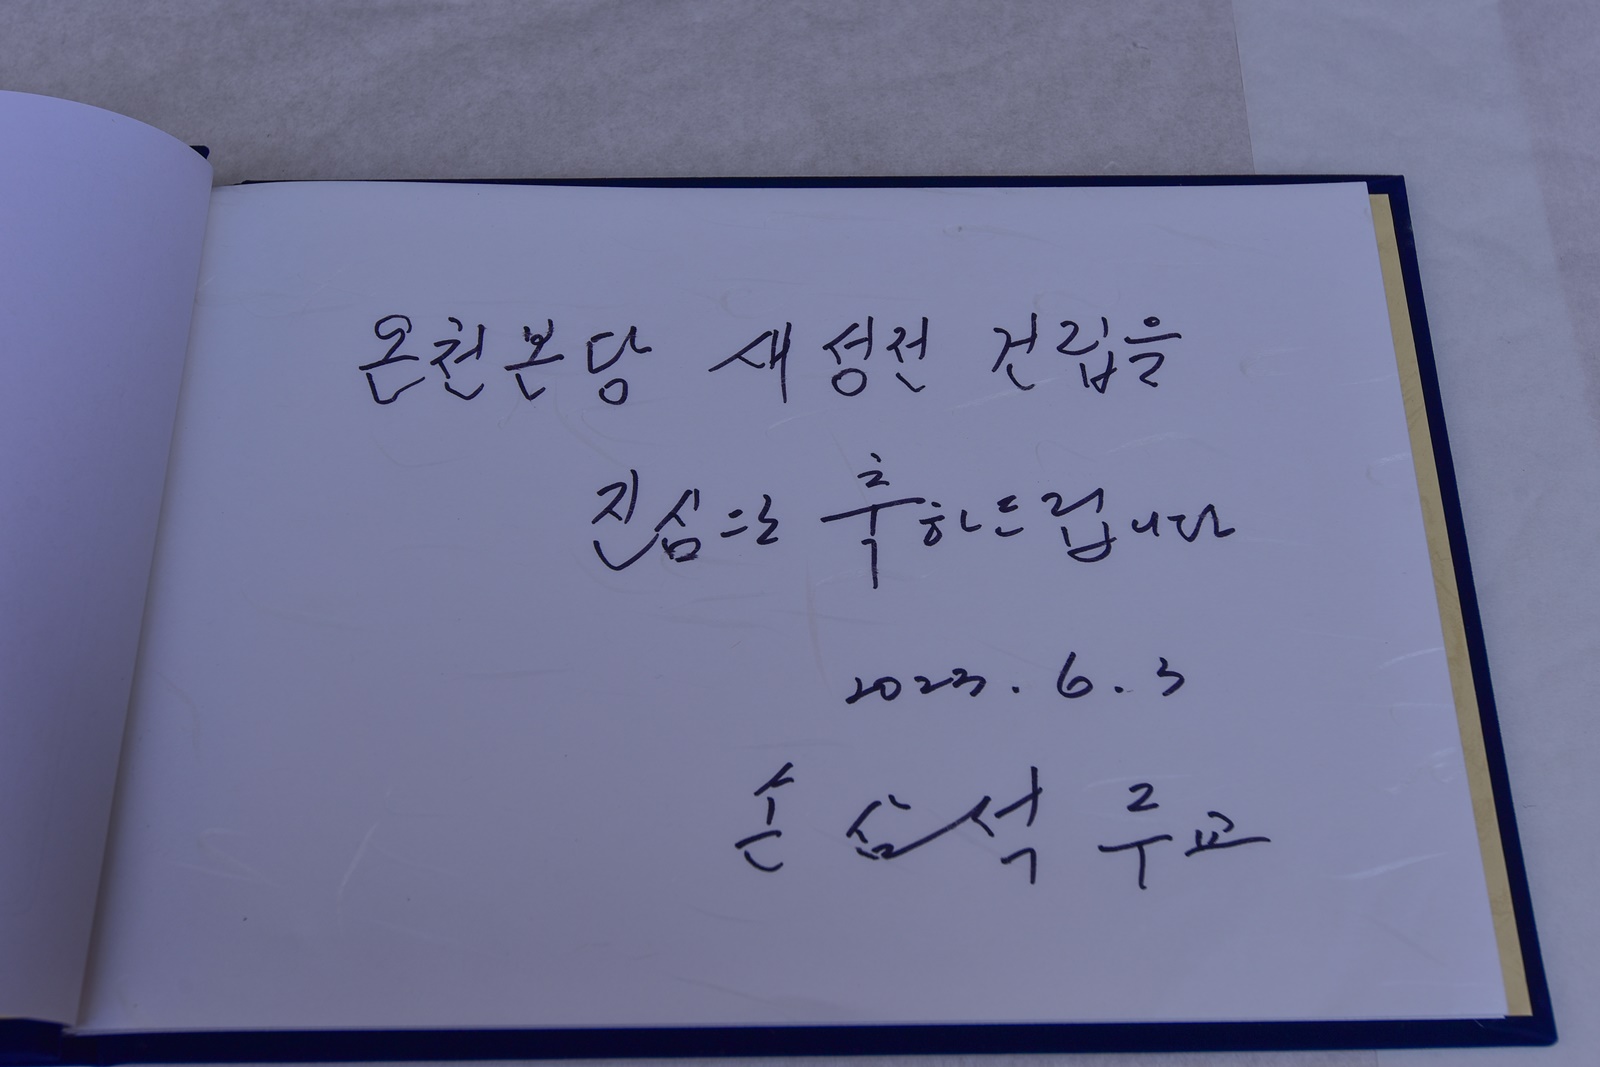 온천본당 새 성전 건립을
진심으로 축하드립니다
2023. 6. 3
손 삼석 주교